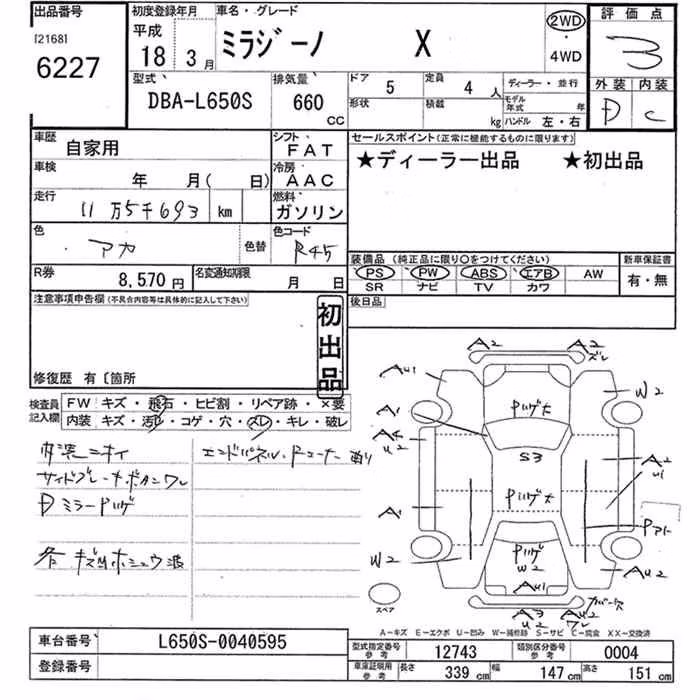 出品番号 初度登録年月 車名・グレード 評価点
[2168] 平成 ミラジーノ X 2WD 3
6227 18 3月 4WD
型式 排気量 ドア 5 定員 4人 ディーラー・並行 外装 内装
DBA-L650S 660 cc 形状 積載 kg モデル年式 年 D C
ハンドル 左・右
車歴 自家用 シフト FAT セールスポイント(正常に機能するものに限ります)
車検 年 月( 日) 冷房 AAC ★ディーラー出品 ★初出品
走行 11万5千693 km 燃料 ガソリン
色 アカ 色替 色コード R45
装備品 (純正品に限り○をつけてください) 新車保証書
R券 8,570円 名変通知期限 月 日 PS PW ABS エアB AW 有・無
SR ナビ TV カワ
注意事項申告欄(不具合内容等は具体的に記入して下さい) 後日品
初出品
修復歴 有〔箇所
検査員記入欄 FW キズ・飛石・ヒビ割・リペア跡・×要
内装 キズ・汚レ・コゲ・穴・スレ・キレ・破レ
内装ニオイ
サイドブレーキボタンワレ
Dミラーハゲ
各キズ凹ホシュウ波
A2 A2
ズレ
AU1 W2
A1 ハゲ大
A4
U2 S3 A2
U1
A1 ハゲ大
W2 ハゲ
W2 AU2
AU1
スペア A3
U2 AU2
ワレ
A−キズ E−エクボ U−凹み W−補修跡 S−サビ C−腐食 XX−交換済
車台番号 L650S-0040595 型式指定番号 参考 12743 類別区分番号 参考 0004
登録番号 車庫証明用 参考 長さ 339 cm 幅 147 cm 高さ 151 cm